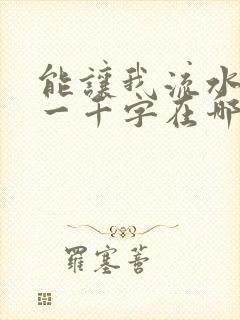 能讓我流水
一千字在哪
羅塞蒼